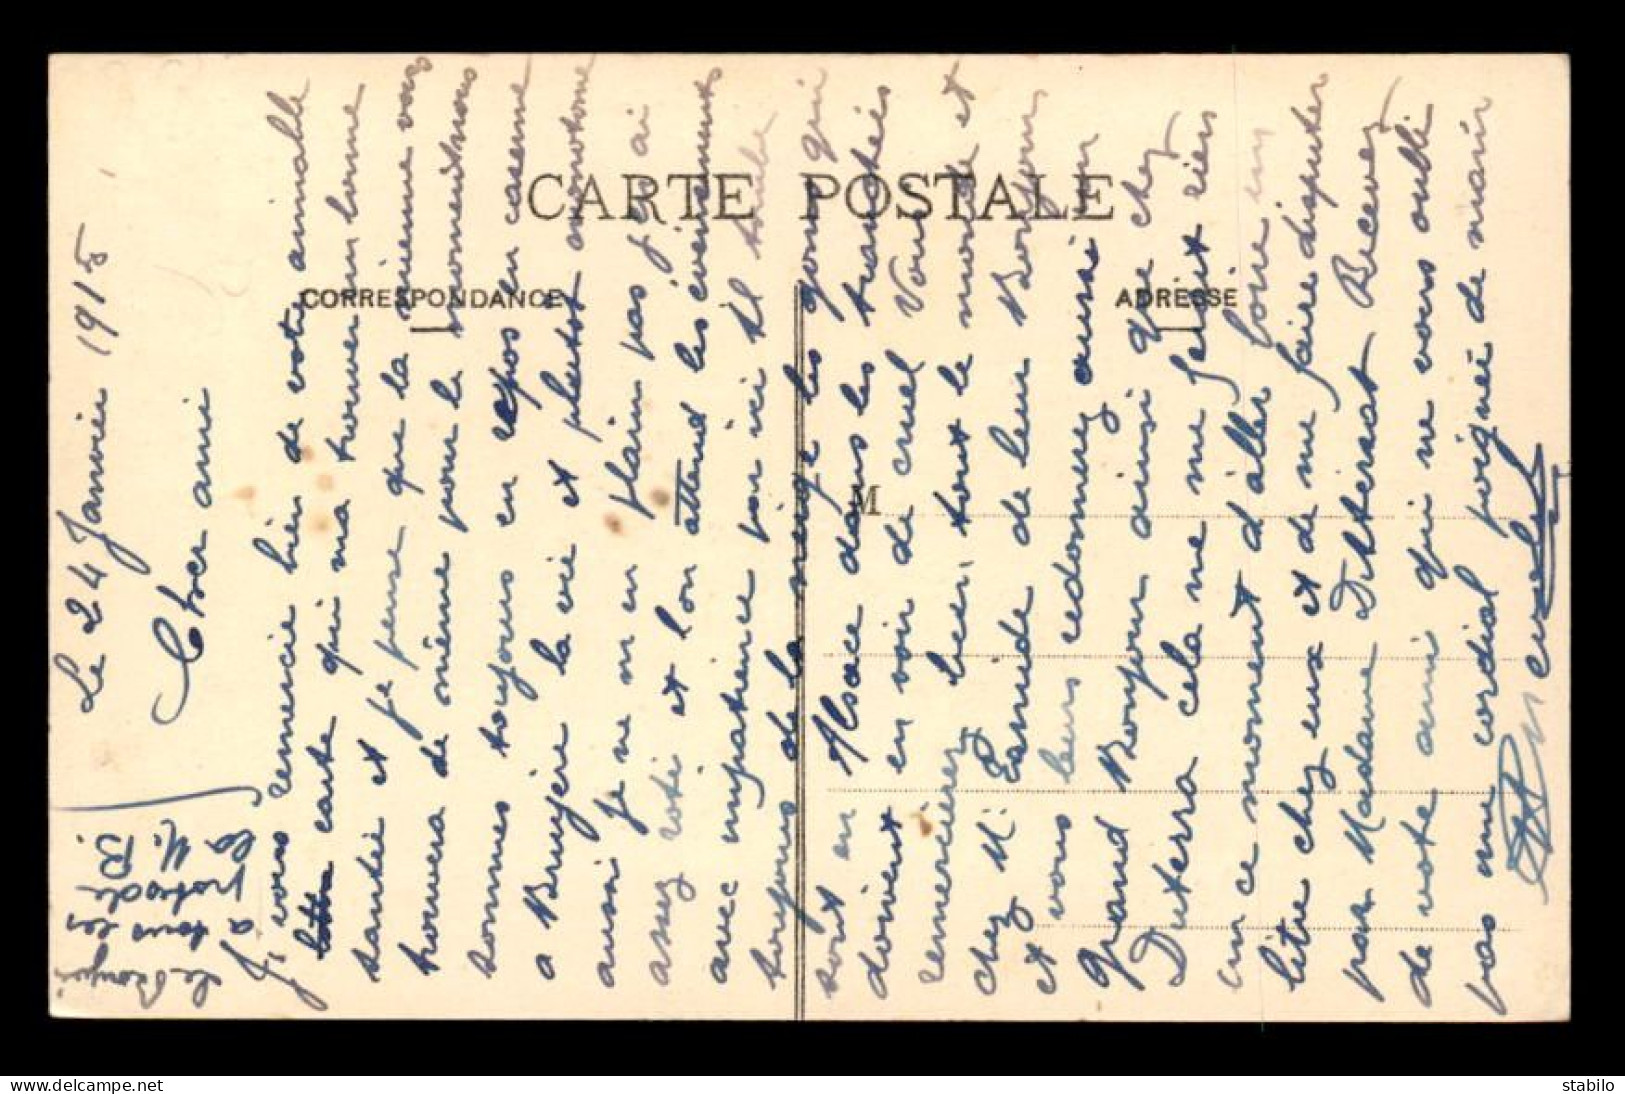 Le 24 Janvier 1915
Cher ami
J vous remercie bien de votre aimable
carte qui ma trouver en bonne
santée et je pense que la mienne vous
trouvera de même pour le moment nous
sommes toujours en repos en caserne
a Bruyère la vie et plutot monotone
aussi je ne m en plain pas j en ai
assez roti et l on attend les évènements
avec impatience par ici il tombe
toujours de la neige les gens qui
sont en Alsace dans les tranchées
doivent en voir de cruel Vous
remercierez bien tout le monde et
chez M. Lamide de leur Bonjour
et vous leurs redonnerez aussi un
grand Bonjour ainsi que chez
Duterra cela ne me ferait rien
en ce moment d'aller boire un
litre chez eux et de me faire disputer
par Madame Dutterat Recevez
de vote ami qui ne vous oubli
pas une cordial poignée de main
Le Bonjour
a tous les
potes de
la M. B.
CARTE POSTALE
CORRESPONDANCE
ADRESSE
M
stabilo
www.delcampe.net